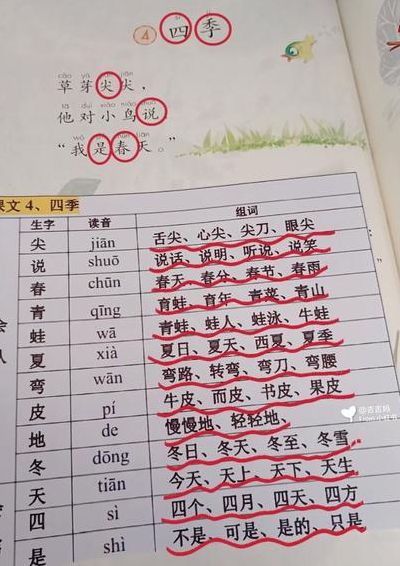 4 四季
cǎo yá jiān jiān
草芽尖尖，
tā duì xiǎo niǎo shuō
他对小鸟说
“我是春天。”
课文 4、四季
生字 读音 组词
尖 jiān 舌尖、心尖、尖刀、眼尖
说 shuō 说话、说明、听说、说笑
春 chūn 春天、春分、春节、春雨
青 qīng 青年、青菜、青山
蛙 wā 青蛙、蛙人、蛙泳、牛蛙
夏 xià 夏日、夏天、西夏、夏季
弯 wān 弯路、转弯、弯刀、弯腰
皮 pí 牛皮、而皮、书皮、果皮
地 de 慢慢地、轻轻地、
冬 dōng 冬日、冬天、冬至、冬雪
天 tiān 今天、天上、天下、天生
四 sì 四个、四月、四天、四方
是 shì 不是、可是、是的、只是